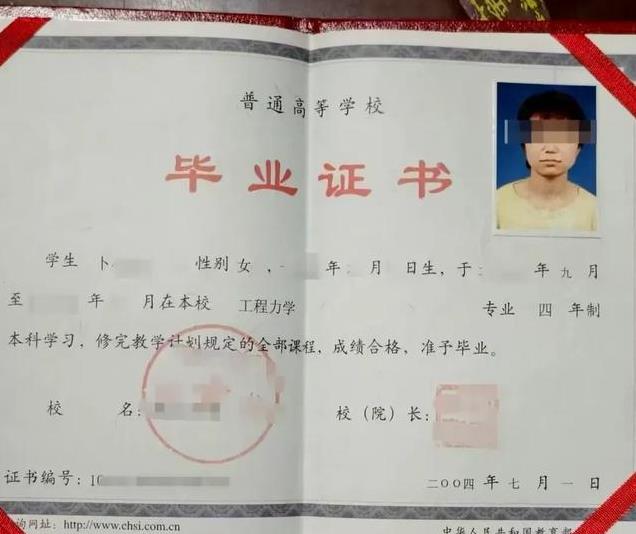 普通高等学校
毕业证书
学生 卜 性别 女，一 年 月 日生，于 年 九 月
至 年 月在本校 工程力学 专业 四 年制
本科学习，修完教学计划规定的全部课程，成绩合格，准予毕业。
校 名： 校（院）长：
证书编号：10 二〇〇四 年 七 月 一 日
询网址：http://www.chsi.com.cn 中华人民共和国教育部